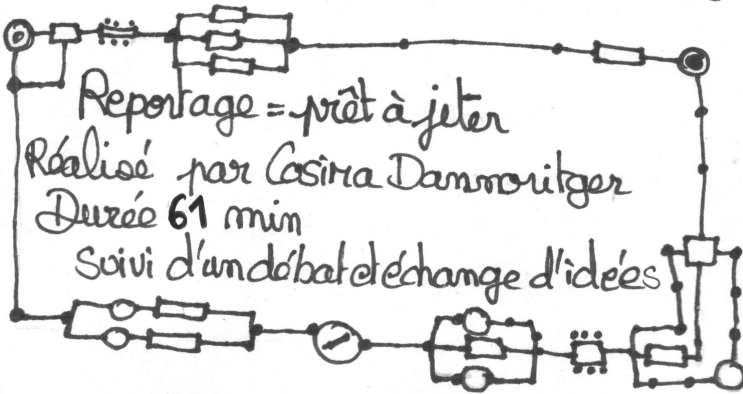 Reportage = prêt à jeter
Réalisé par Cosima Dannoritger
Durée 61 min
Suivi d'un débat et échange d'idées